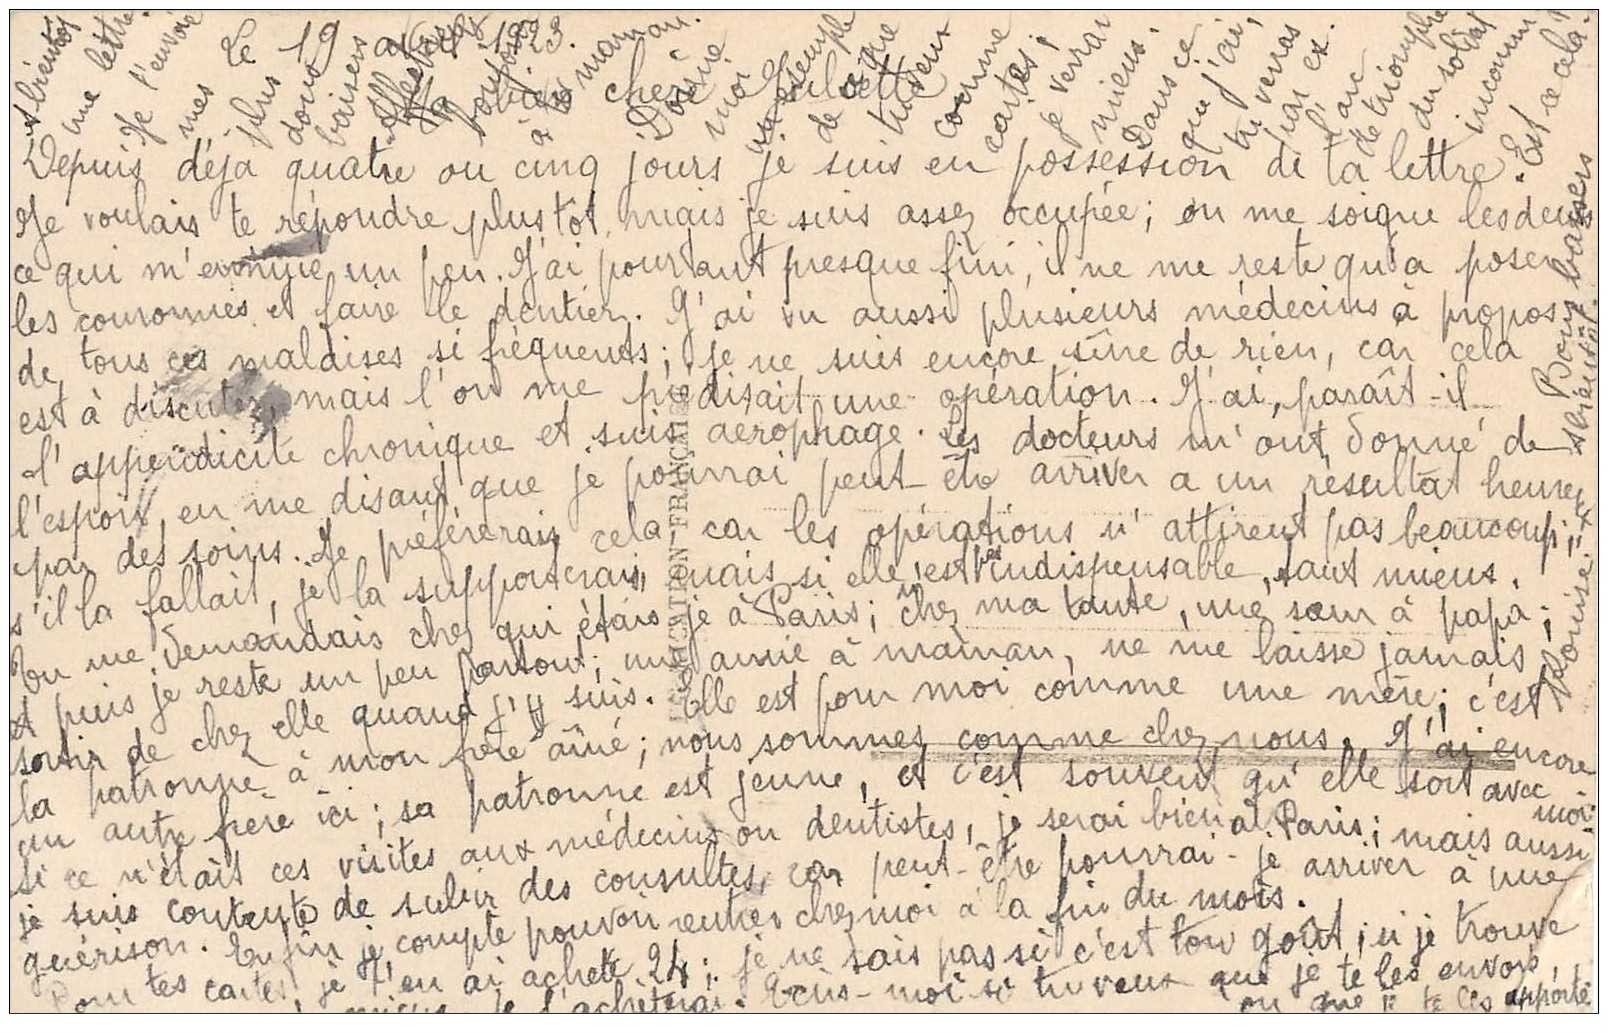 Le 19 1923.
Ma bien chère Juliette
Depuis déja quatre ou cinq jours je suis en possession de ta lettre.
Je voulais te répondre plus tôt, mais je suis assez occupée; on me soigne les deux
ce qui m'ennuie un peu. J'ai pourtant presque fini, il ne me reste qu'a poser
les couronnes et faire le dentier. J'ai vu aussi plusieurs médecins à propos
de tous ces malaises si fréquents; je ne suis encore sûre de rien, car cela
est à discuter, mais l'on me prédisait une opération. J'ai, paraît-il
l'appendicite chronique et suis aérophage. Les docteurs m'ont donné de
l'espoir, en me disant que je pourrai peut-être arriver a un résultat heureux
par des soins. Je préférerais cela, car les opérations n'attirent pas beaucoup;
s'il la fallait, je la supporterais, mais si elle n'est pas indispensable, vaut mieux.
Tu me demandais chez qui étais je à Paris; chez ma tante, une sœur à papa;
et puis je reste un peu partout; une amie à maman, ne me laisse jamais
sortir de chez elle quand j'y suis. Elle est pour moi comme une mère; c'est
la patronne à mon frère aîné; nous sommes comme chez nous. J'ai encore
un autre frère ici; sa patronne est jeune, et c'est souvent qu'elle sort avec moi.
si ce n'était ces visites aux médecins ou dentistes, je serai bien à Paris; mais aussi
je suis contente de subir des consultes, car peut-être pourrai-je arriver à une
guérison. Enfin je compte pouvoir rentrer chez moi à la fin du mois.
Pour tes cartes, je t'en ai acheté 24; je ne sais pas si c'est ton goût; si je trouve
mieux je t'achèterai. Écris-moi si tu veux que je te les envoie,
ou que je te les apporte
à ta maman.
Donne
moi
de ce que
tu veux
comme
cartes;
je verrai
mieux.
Dans ce
que j'ai,
tu verras
par ex.
l'arc
de triomphe
du soldat
inconnu
Est ce cela?
à bientôt
une lettre.
Je t'envoie
mes
plus
doux
baisers
Bons baisers
à bientôt.
Louise
ÉDUCATION FRANÇAISE